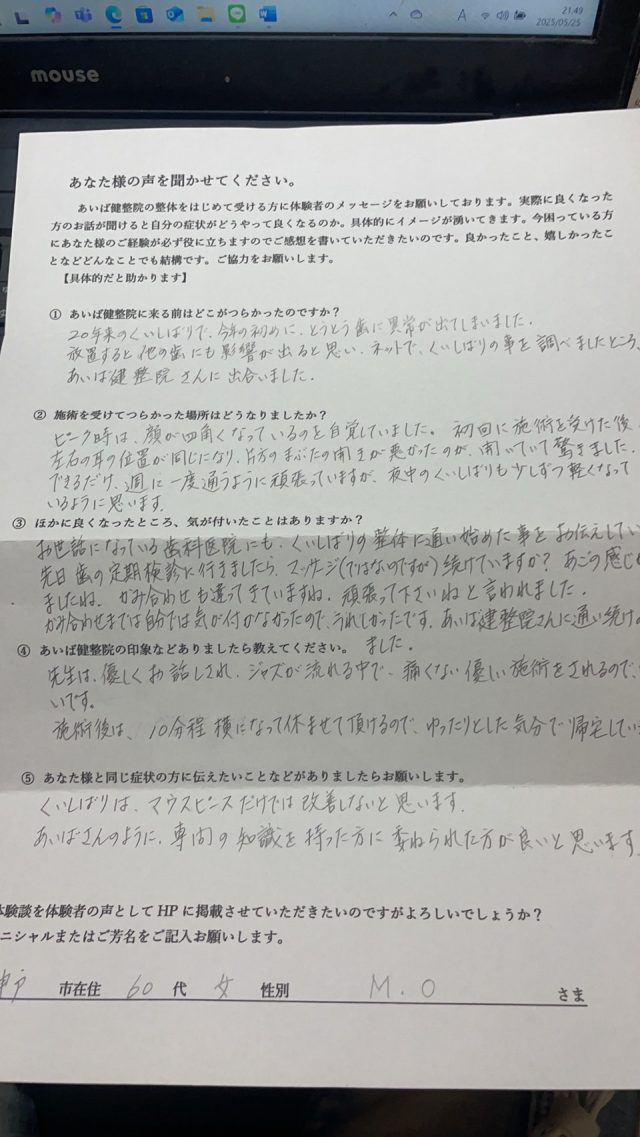 21:49
2025/05/25
A
mouse
あなた様の声を聞かせてください。
あいば健整院の整体をはじめて受ける方に体験者のメッセージをお願いしております。実際に良くなった
方のお話が聞けると自分の症状がどうやって良くなるのか。具体的にイメージが湧いてきます。今困っている方
にあなた様のご経験が必ず役に立ちますのでご感想を書いていただきたいのです。良かったこと、嬉しかったこ
となどどんなことでも結構です。ご協力をお願いします。
【具体的だと助かります】
① あいば健整院に来る前はどこがつらかったのですか？
20年来のくいしばりで、今年の初めに、とうとう歯に異常が出てしまいました。
放置すると他の歯にも影響が出ると思い、ネットで、くいしばりの事を調べましたところ、
あいば健整院さんに出合いました。
② 施術を受けてつらかった場所はどうなりましたか？
ピーク時は、顔が四角くなっているのを自覚していました。初回に施術を受けた後、
左右の耳の位置が同じになり、片方のまぶたの開きが悪かったのが、開いていて驚きました。
できるだけ、週に一度通うように頑張っていますが、夜中のくいしばりも少しずつ軽くなって
いるように思います。
③ ほかに良くなったところ、気が付いたことはありますか？
お世話になっている歯科医院にも、くいしばりの整体に通い始めた事をお伝えしてい
先日歯の定期検診に行きましたら、マッサージ(ではないのですが)続けていますか？あごの感じ
ましたね。かみ合わせも違ってきていますね。頑張って下さいねと言われました。
かみ合わせまでは自分では気が付かなかったので、うれしかったです。あいば健整院さんに通い続け
ました。
④ あいば健整院の印象などありましたら教えてください。
先生は、優しくお話しされ、ジャズが流れる中で、痛くない優しい施術をされるので、
いです。
施術後は、10分程横になって休ませて頂けるので、ゆったりとした気分で帰宅してい
⑤ あなた様と同じ症状の方に伝えたいことなどがありましたらお願いします。
くいしばりは、マウスピースだけでは改善しないと思います。
あいばさんのように、専門の知識を持った方に委ねられた方が良いと思います
体験談を体験者の声としてHPに掲載させていただきたいのですがよろしいでしょうか？
ニシャルまたはご芳名をご記入お願いします。
戸 市在住 60 代 女 性別 M.O さま